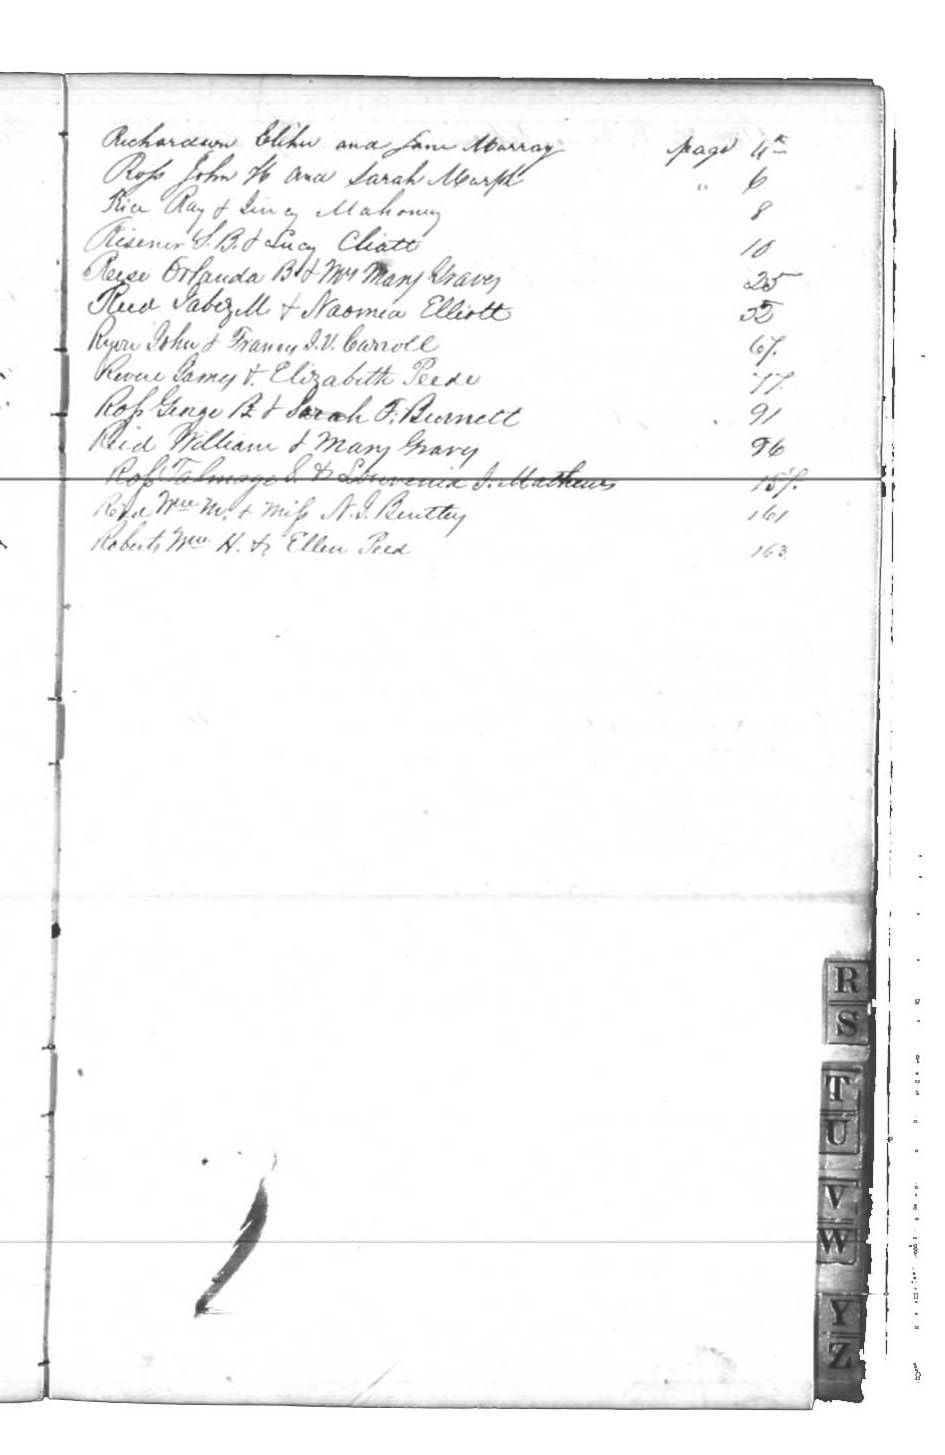 Richardson Elihu and Jane Murray page 4
Ross John H and Sarah Marsh " 6
Rice Ray & Mahoney 8
Risener S. B. & Lucy Cliatt 10
Reese Orlanda B & Mrs Mary Graves 25
Reed & Naomia Elliott 52
John & Frances J. V. Carroll 67.
Revere James & Elizabeth Peede 77
Ross George B & Sarah F. Burnett 91
Reid William & Mary Graves 96
Ross Talmage S. & Louvenia J. Mathews 157.
Reed Wm M. & Miss N. J. Bentley 161
Roberts Wm H. & Ellen Peed 163
R
S
T
U
V
W
Y
Z